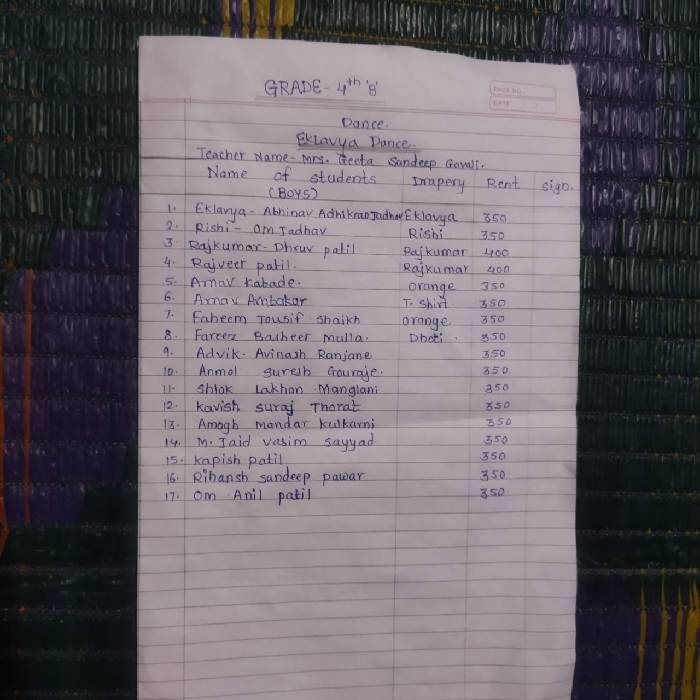 GRADE - 4th 'B'
PAGE NO.
DATE
Dance.
Eklavya Dance.
Teacher Name - Mrs. Geeta Sandeep Gavali.
Name of students Drapery Rent sign.
(BOYS)
1. Eklavya - Abhinav Adhikrao Jadhav Eklavya 350
2. Rishi - Om Jadhav Rishi 350
3. Rajkumar - Dhruv patil Rajkumar 400
4. Rajveer patil. Rajkumar 400
5. Arnav Kabade. orange 350
6. Arnav Ambakar T. Shirt 350
7. Faheem Tousif Shaikh orange 350
8. Fareez Basheer Mulla. Dhoti. 350
9. Advik. Avinash Ranjane 350
10. Anmol suresh Gouraje. 350
11. Shlok Lakhan Manglani 350
12. Kavish suraj Thorat 350
13. Amogh mandar kulkarni 350
14. M. Jaid vasim sayyad 350
15. Kapish patil 350
16. Rihansh sandeep pawar 350
17. Om Anil patil 350